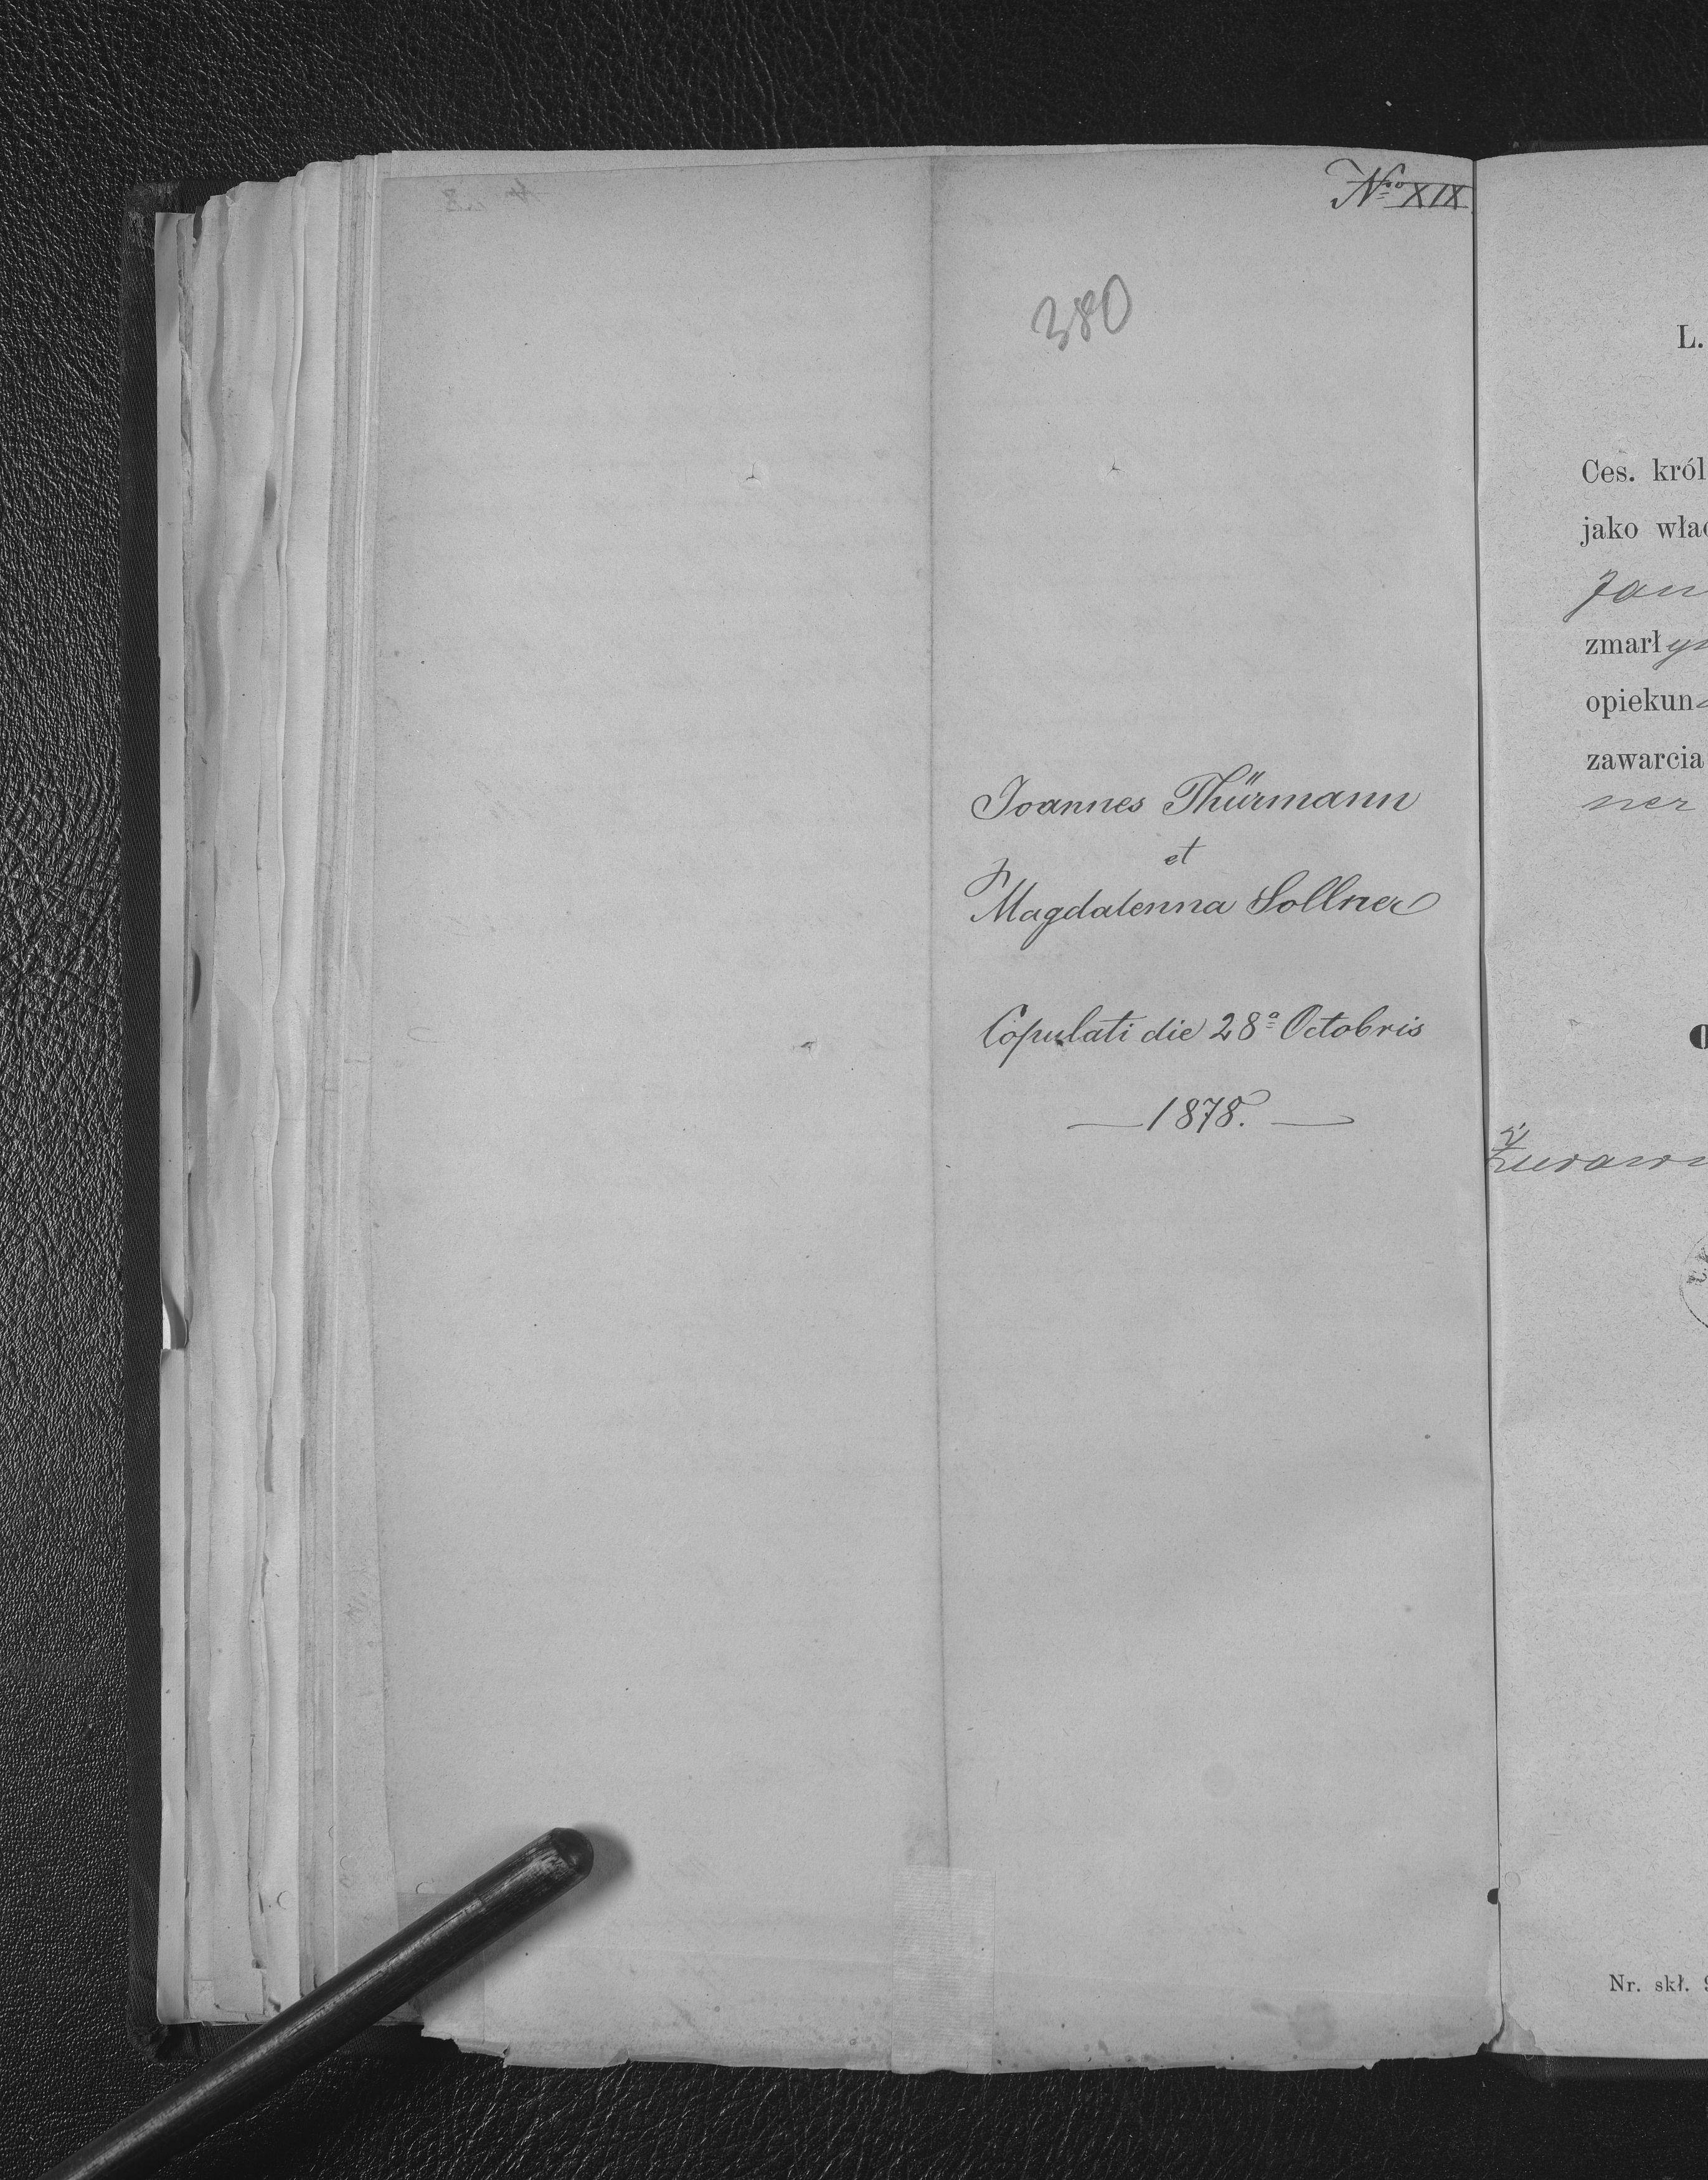 Nro XIX
380
Joannes Thürmann
et
Magdalenna Sollner
Copulati die 28a Octobris
— 1878. —
L.
Ces. król
jako wła
Jan
zmarłym
opiekun
zawarcia
ner
Żurawn
Nr. skł. 9